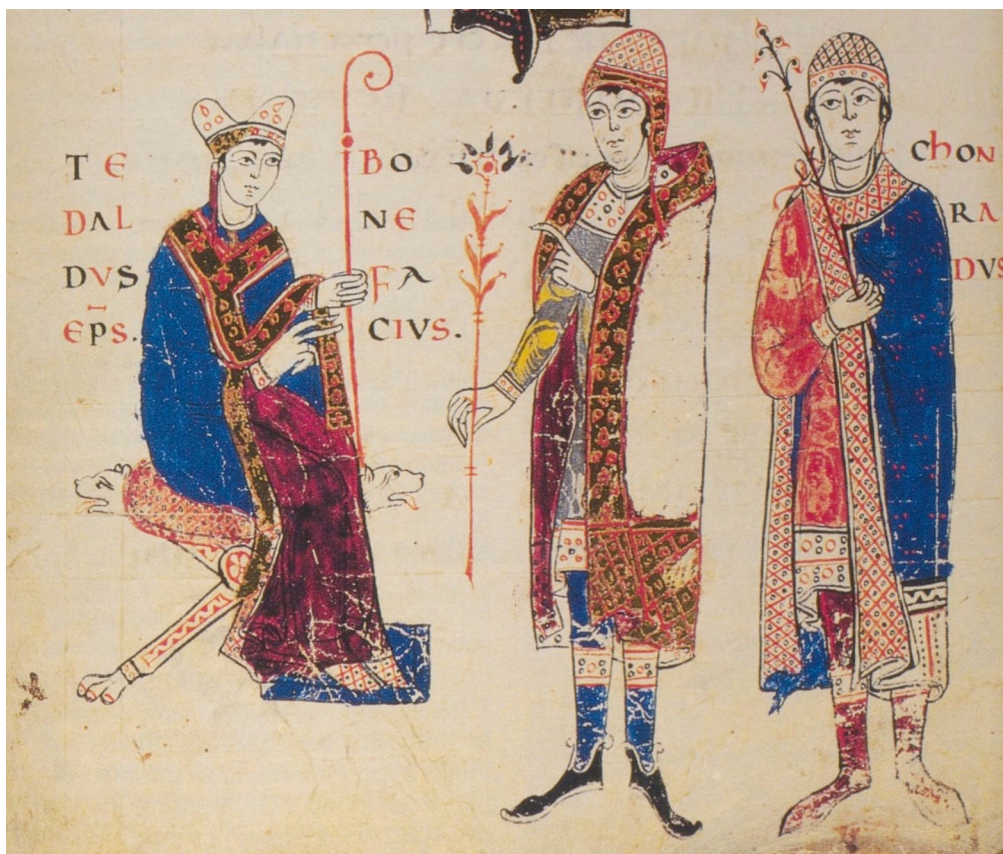 TE
DAL
DVS
EP̄S.
BO
NE
FA
CIVS.
ChON
RA
DVS